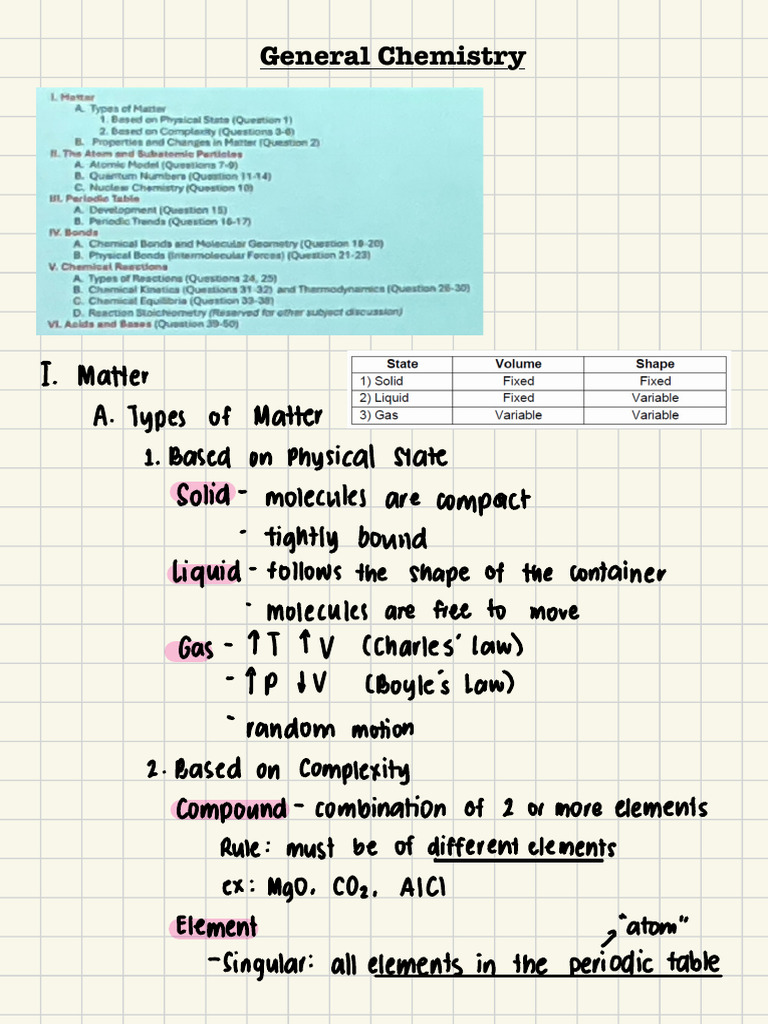 General Chemistry
I. Matter
A. Types of Matter
1. Based on Physical State (Question 1)
2. Based on Complexity (Questions 3-6)
B. Properties and Changes in Matter (Question 2)
II. The Atom and Subatomic Particles
A. Atomic Model (Questions 7-9)
B. Quantum Numbers (Question 11-14)
C. Nuclear Chemistry (Question 10)
III. Periodic Table
A. Development (Question 15)
B. Periodic Trends (Question 16-17)
IV. Bonds
A. Chemical Bonds and Molecular Geometry (Question 18-20)
B. Physical Bonds (Intermolecular Forces) (Question 21-23)
V. Chemical Reactions
A. Types of Reactions (Questions 24, 25)
B. Chemical Kinetics (Questions 31-32) and Thermodynamics (Question 26-30)
C. Chemical Equilibria (Question 33-38)
D. Reaction Stoichiometry (Reserved for other subject discussion)
VI. Acids and Bases (Question 39-50)
State Volume Shape
1) Solid Fixed Fixed
2) Liquid Fixed Variable
3) Gas Variable Variable
I. Matter
A. Types of Matter
1. Based on Physical State
Solid - molecules are compact
- tightly bound
Liquid - follows the shape of the container
- molecules are free to move
Gas - ↑T ↑V (Charles' Law)
- ↑P ↓V (Boyle's Law)
- random motion
2. Based on Complexity
Compound - combination of 2 or more elements
Rule: must be of different elements
ex: MgO, CO₂, AlCl
Element
"atom"
- Singular: all elements in the periodic table